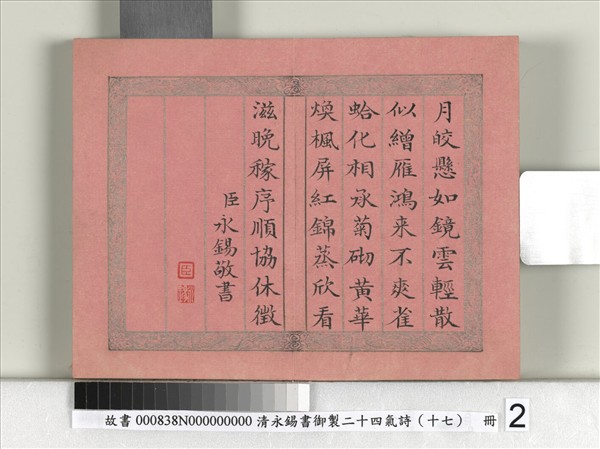 月皎懸如鏡雲輕散
似繒雁鴻来不爽雀
蛤化相承菊砌黃華
煥楓屏紅錦蒸欣看
滋晚稼序順協休徵
臣永錫敬書
臣
故書 000838N000000000 清永錫書御製二十四氣詩（十七） 冊
2